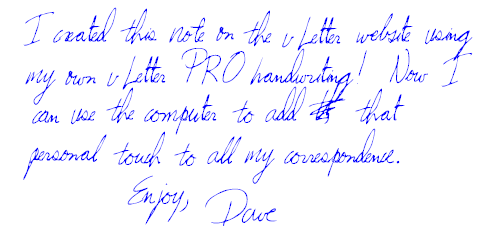 I created this note on the vLetter website using
my own vLetter PRO handwriting! Now I
can use the computer to add that
personal touch to all my correspondence.
Enjoy,
Dave